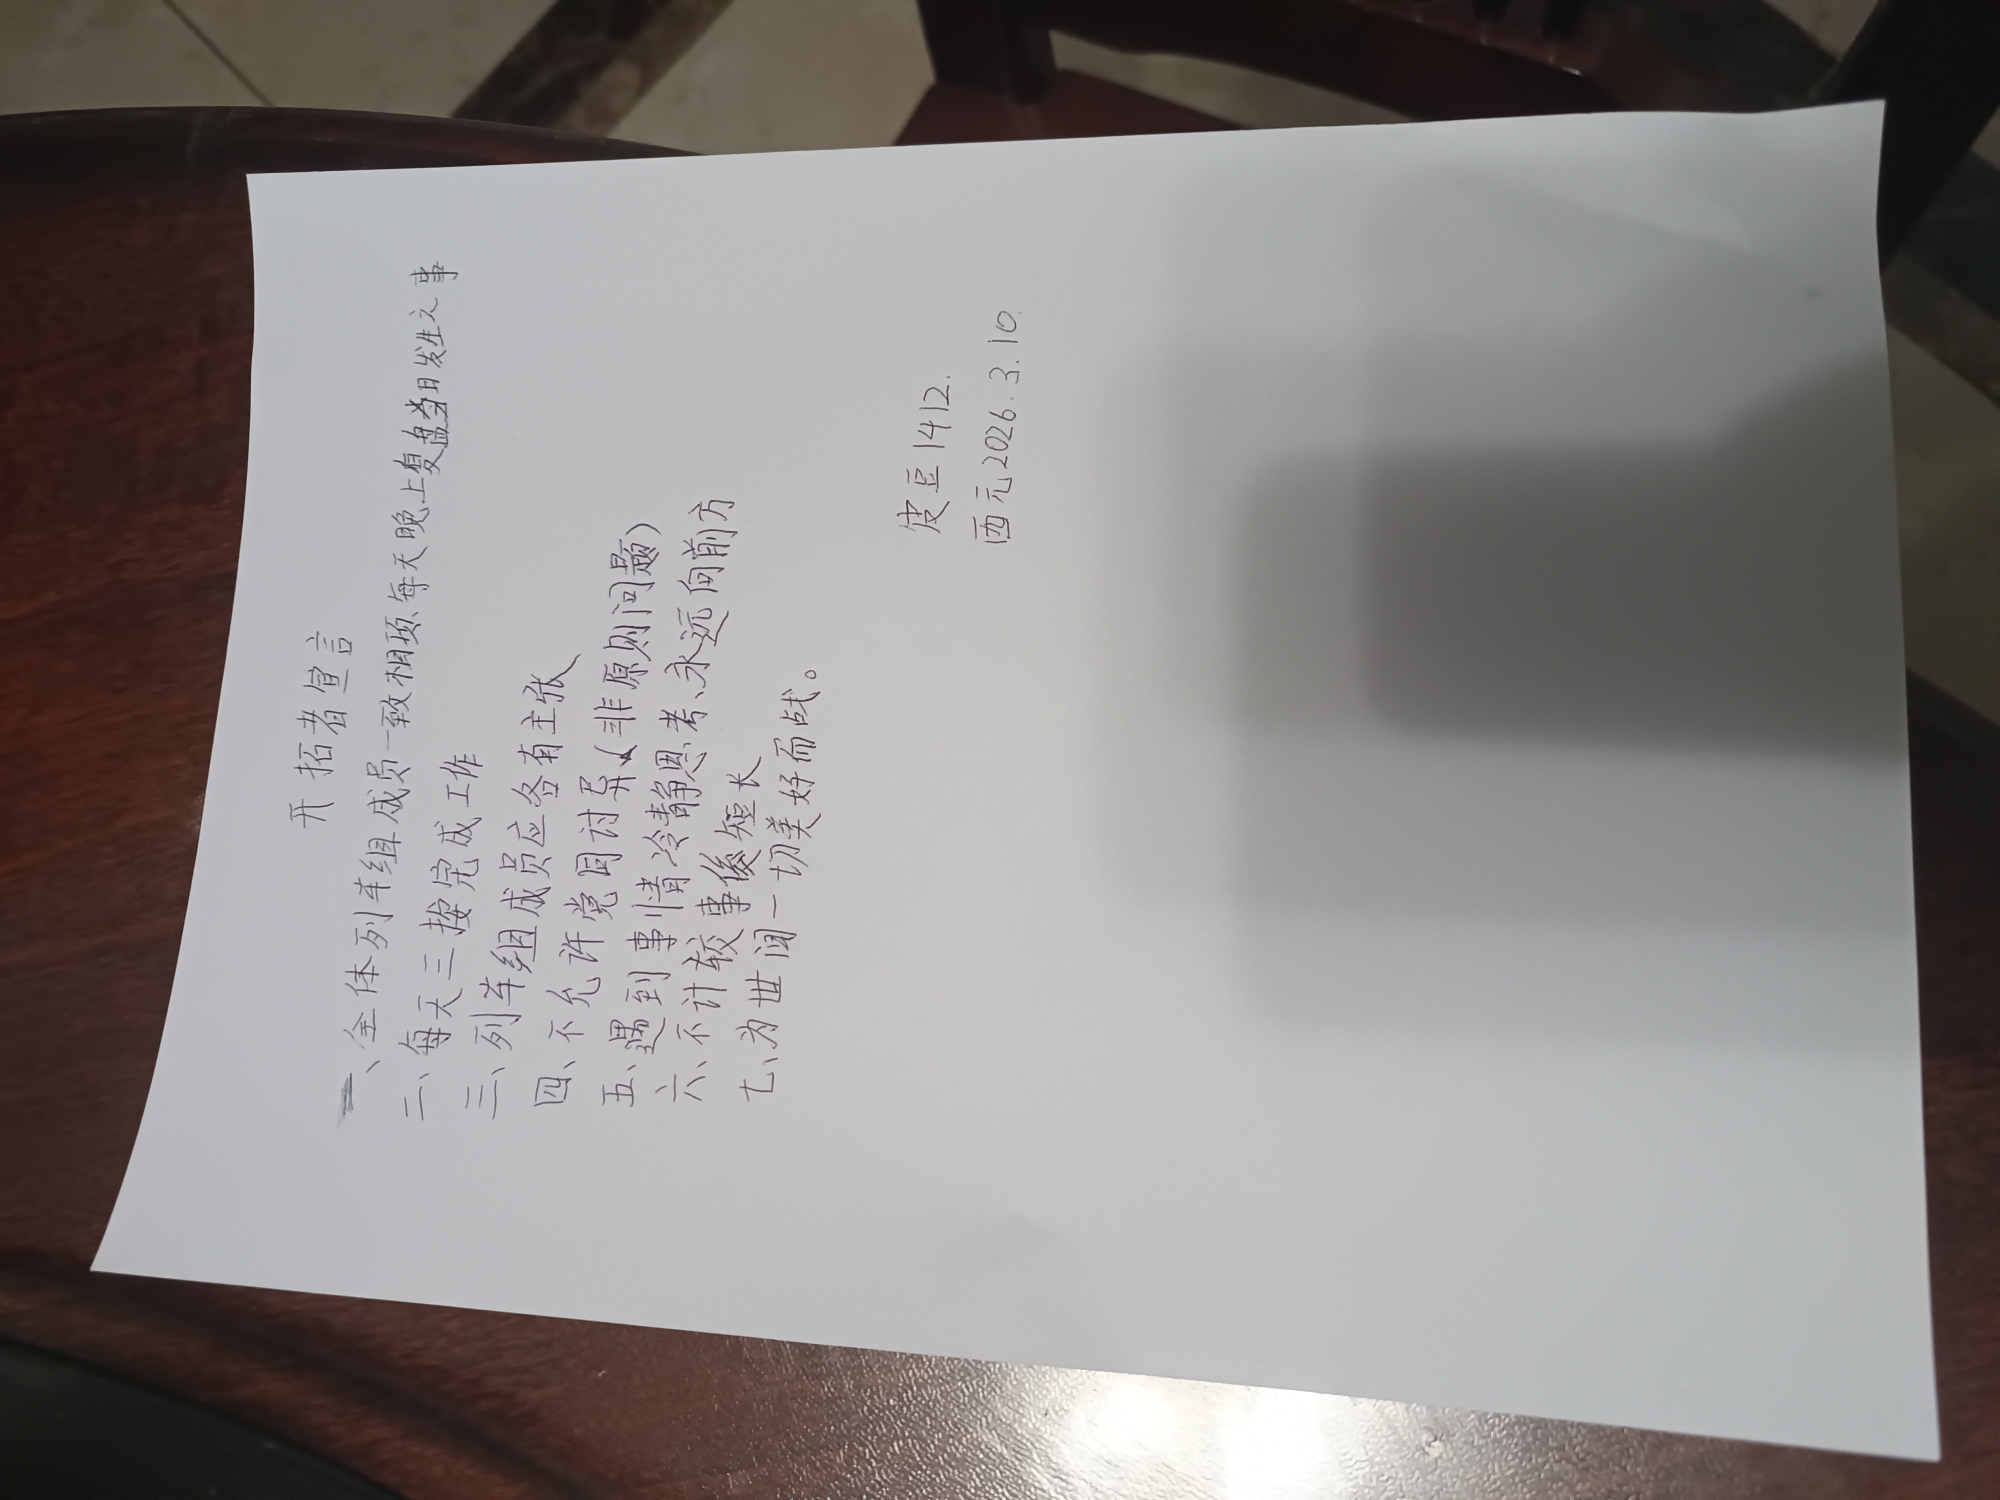 开拓者宣言
一、全体列车组成员一致相顾、每天晚上复盘当日发生之事
二、每天三按完成工作
三、列车组成员应各有主张
四、不允许党同讨异(非原则问题)
五、遇到事情冷静思考、永远向前方
六、不计较事後短长
七、为世间一切美好而战。
皮豆1412.
西元2026.3.10.